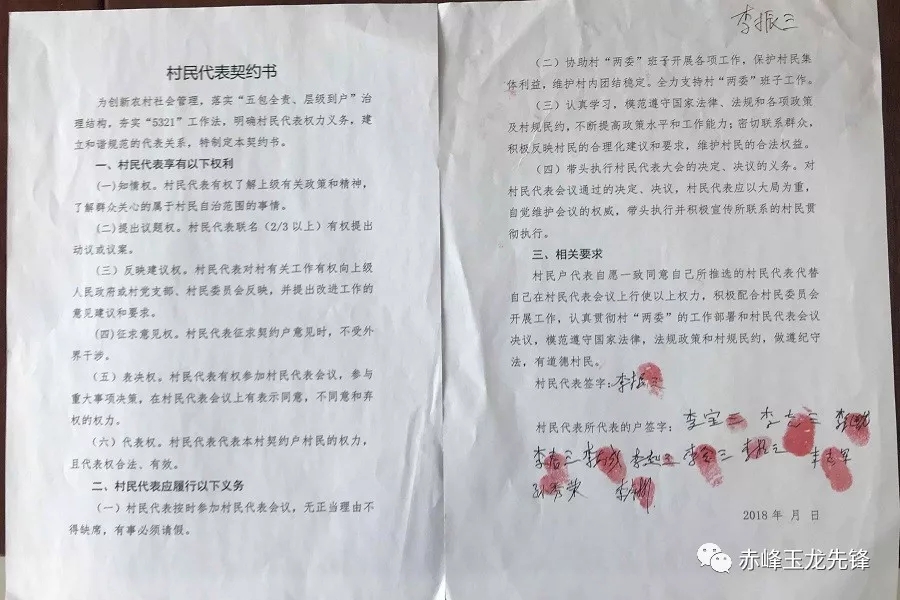 村民代表契约书
为创新农村社会管理，落实“五包全责、层级到户”治
理结构，夯实“5321”工作法，明确村民代表权力义务，建
立和谐规范的代表关系，特制定本契约书。
一、村民代表享有以下权利
(一)知情权。村民代表有权了解上级有关政策和精神，
了解群众关心的属于村民自治范围的事情。
(二)提出议题权。村民代表联名（2/3以上）有权提出
动议或议案。
（三）反映建议权。村民代表对村有关工作有权向上级
人民政府或村党支部、村民委员会反映，并提出改进工作的
意见建议和要求。
(四)征求意见权。村民代表征求契约户意见时，不受外
界干涉。
（五）表决权。村民代表有权参加村民代表会议，参与
重大事项决策，在村民代表会议上有表示同意，不同意和弃
权的权力。
（六）代表权。村民代表代表本村契约户村民的权力，
且代表权合法、有效。
二、村民代表应履行以下义务
（一）村民代表按时参加村民代表会议，无正当理由不
得缺席，有事必须请假。
李振三
（二）协助村“两委”班子开展各项工作，保护村民集
体利益，维护村内团结稳定。全力支持村“两委”班子工作。
（三）认真学习，模范遵守国家法律、法规和各项政策
及村规民约，不断提高政策水平和工作能力；密切联系群众，
积极反映村民的合理化建议和要求，维护村民的合法权益。
（四）带头执行村民代表大会的决定、决议的义务。对
村民代表会议通过的决定、决议，村民代表应以大局为重，
自觉维护会议的权威，带头执行并积极宣传所联系的村民贯
彻执行。
三、相关要求
村民户代表自愿一致同意自己所推选的村民代表代替
自己在村民代表会议上行使以上权力，积极配合村民委员会
开展工作，认真贯彻村“两委”的工作部署和村民代表会议
决议，模范遵守国家法律，法规政策和村规民约，做遵纪守
法，有道德村民。
村民代表签字：李振三
村民代表所代表的户签字：李宝三
2018年 月 日
赤峰玉龙先锋